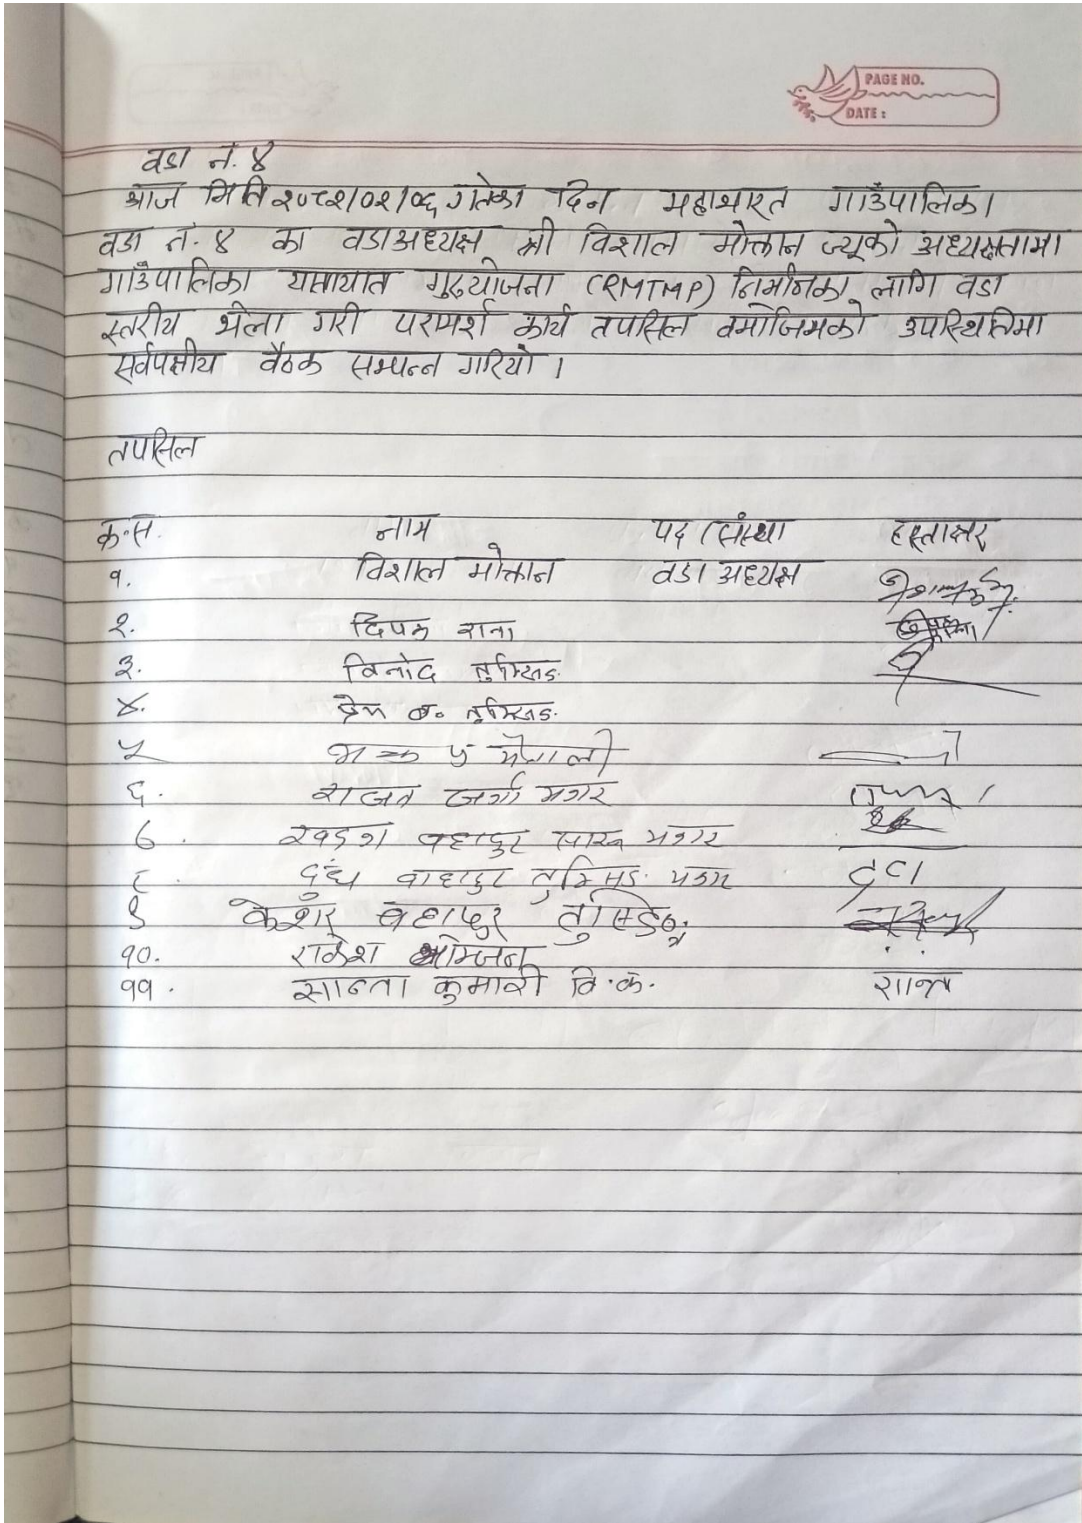 PAGE NO.
DATE :
वडा नं. ४
आज मिति २०८१/०२/०६ गतेका दिन महाभारत गाउँपालिका
वडा नं. ४ का वडाअध्यक्ष श्री विशाल मोक्तान ज्यूको अध्यक्षतामा
गाउँपालिका यातायात गुरुयोजना (RMTMP) निर्माणका लागि वडा
स्तरीय भेला गरी परामर्श कार्य तपसिल बमोजिमको उपस्थितिमा
सर्वपक्षीय बैठक सम्पन्न गरियो ।
तपसिल
क्र.स. नाम पद / संस्था हस्ताक्षर
१. विशाल मोक्तान वडा अध्यक्ष
२. दिपक राना
३. विनोद तुम्सिङ
४. प्रेम ब. तुम्सिङ
५ नेपाली
६. मगर
७. खडग बहादुर सारु मगर
८ बाहादुर तुम्सिङ मगर
९ केशर बहादुर
१०. राकेश
११. सान्ता कुमारी वि.क. शान्ता